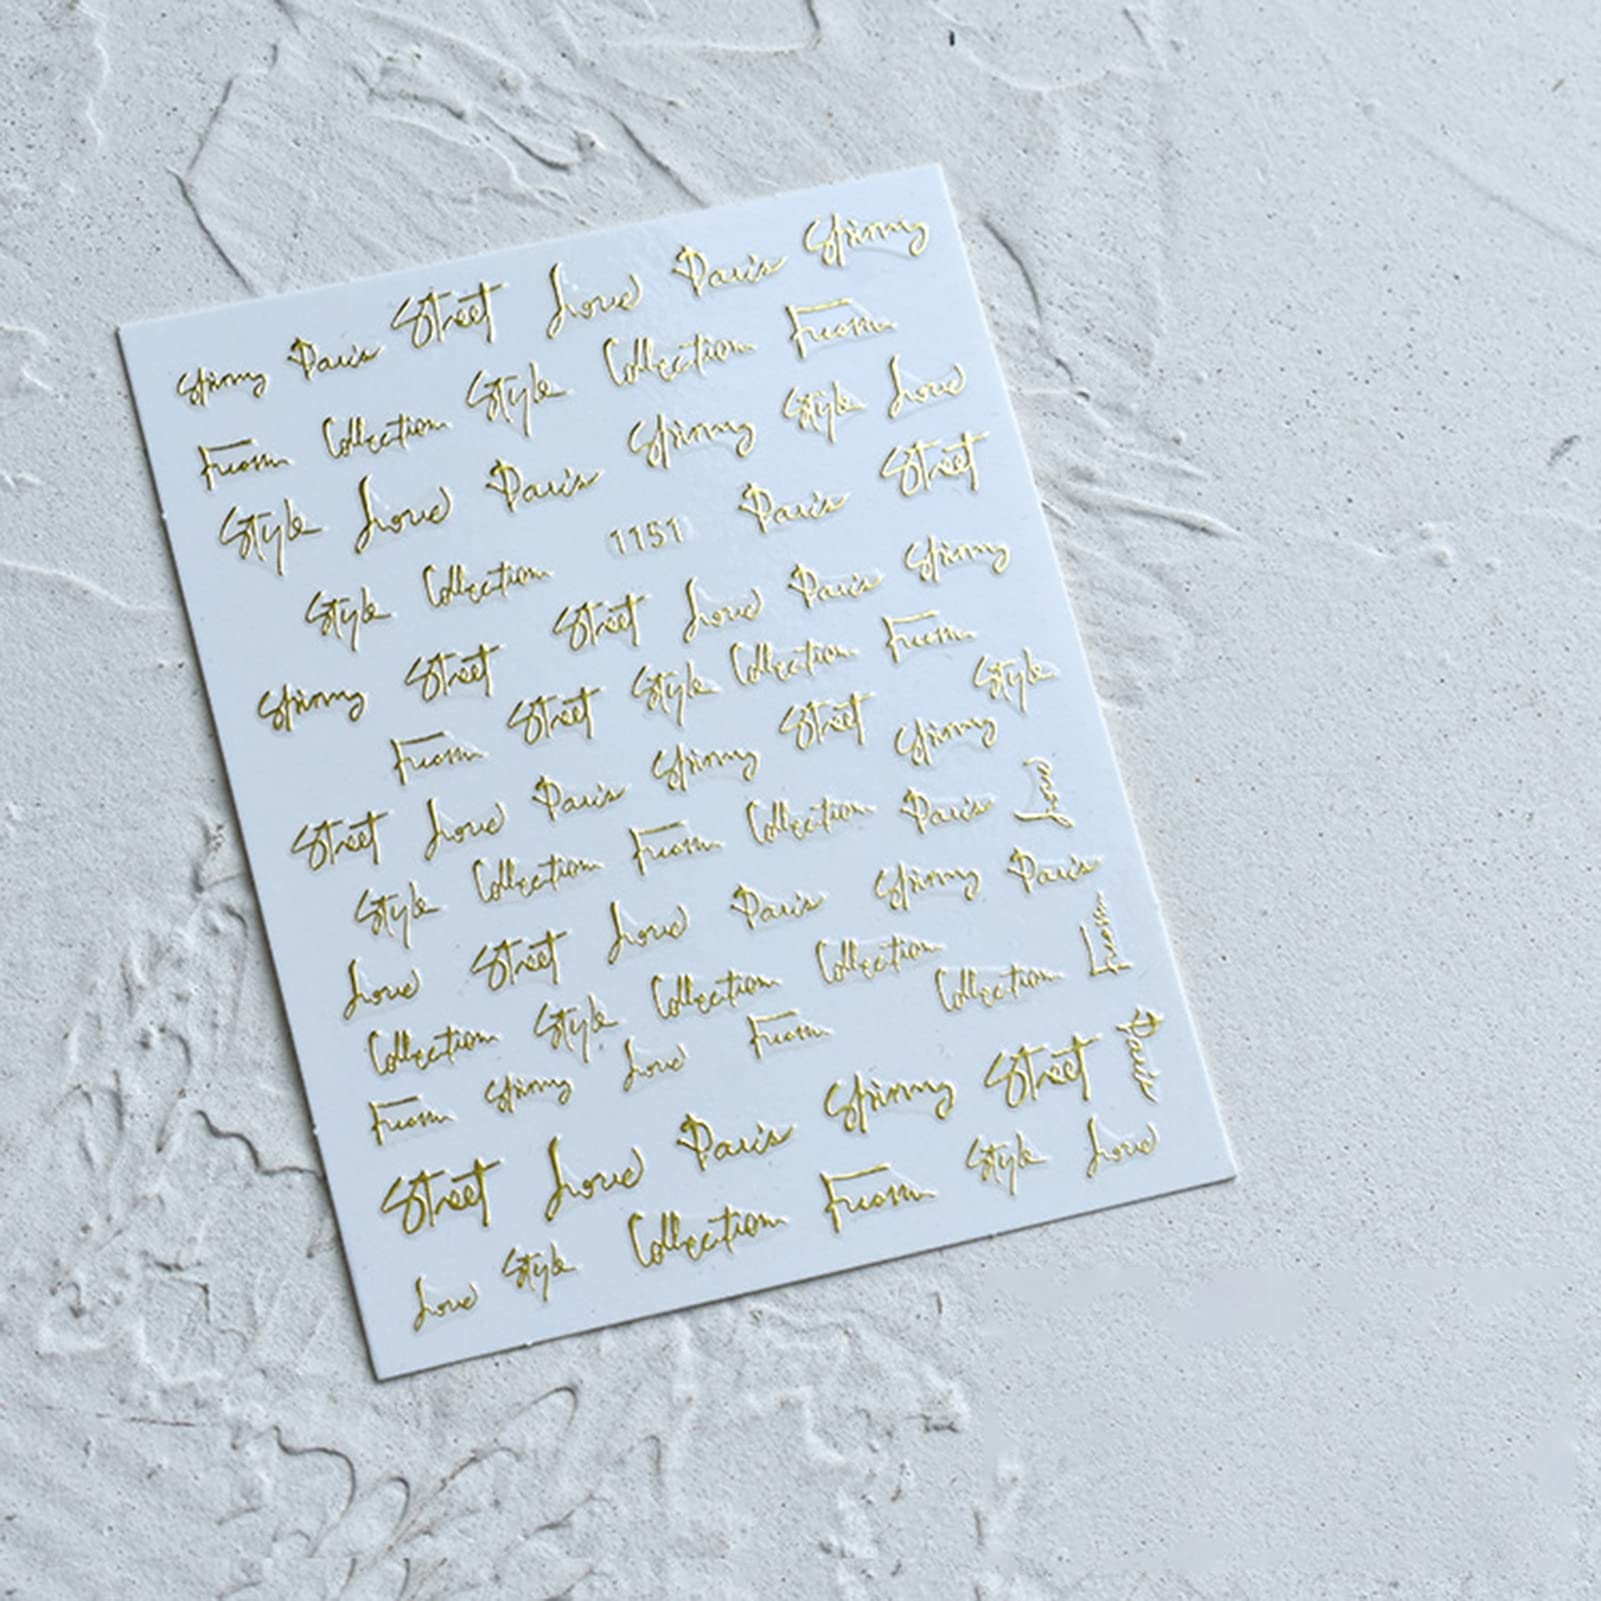 Spring Paris Street Love Paris Spring
From Collection Style Collection From
Style Love Paris Spring Style Love
Style Collection 1151 Paris Street
Spring Street Street Love Paris Spring
From Street Style Collection From Style
Street Love Paris Spring Street Spring
Style Collection From Collection Paris Love
Love Street Love Paris Spring Paris
Collection Style Collection Collection Collection From
From Spring Love From
Street Love Paris Spring Street Paris
Love Style Collection From Style Love